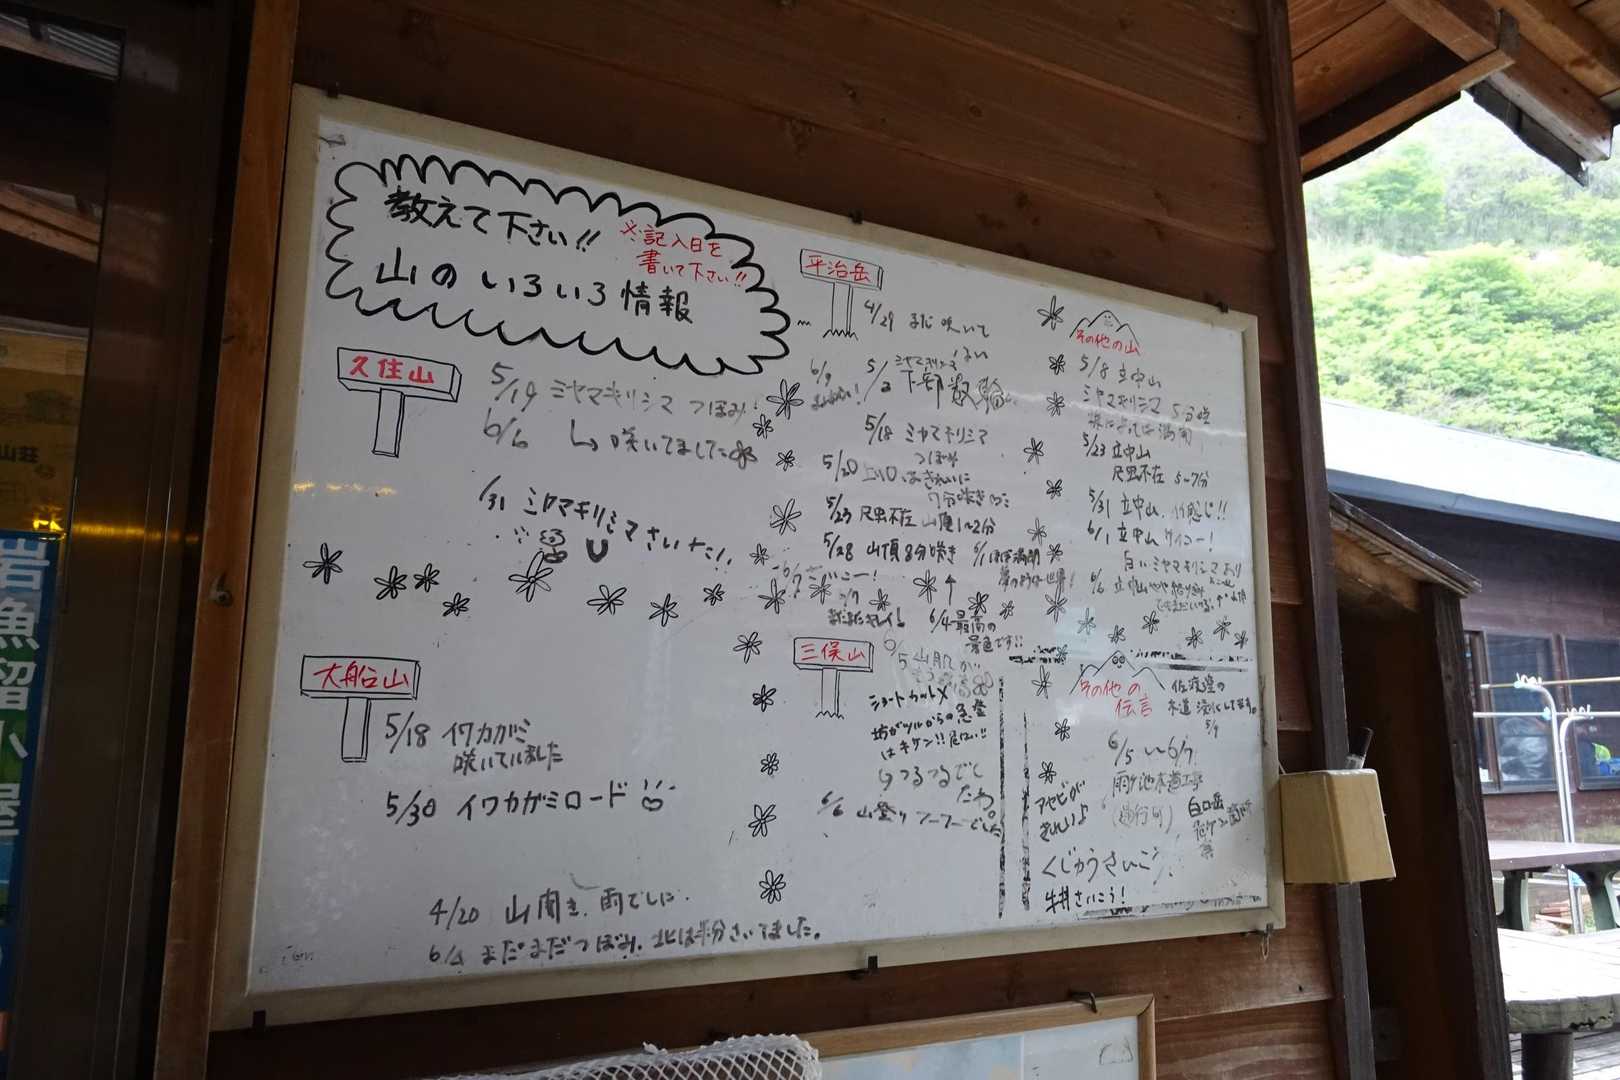 教えて下さい!!
※記入日を
書いて下さい!!
山のいろいろ情報
久住山
5/19 ミヤマキリシマ つぼみ!
6/6 咲いてました
5/31 ミヤマキリシマさいた!!
大船山
5/18 イワカガミ
咲いていました
5/30 イワカガミロード
4/20 山開き、雨でした.
6/4 まだまだつぼみ、北は半分さいてました。
平治岳
4/29 まだ咲いて
ない
5/2 ミヤマキリシマ
下部数輪
5/18 ミヤマキリシマ
つぼみ
5/20
7分咲き
5/23 尺取不在 山頂1〜2分
5/28 山頂8分咲き
6/1 ほぼ満開
夢のような世界!
6/7
まだまだキレイ!
6/4 最高の
景色です!!
三俣山
6/5 山肌が
ショートカット×
坊がツルからの急登
はキケン!!
つるつるでし
たわ
6/6 山登りフーフーでした
その他の山
5/8 立中山
ミヤマキリシマ 5分咲
株によっては満開
5/23 立中山
尺取不在 5〜7分
5/31 立中山
6/1 立中山 サイコー!
白いミヤマキリシマあり
6/6 立中山
その他の
伝言
佐渡窪の
木道
5/9
6/5 〜 6/7
雨ヶ池木道工事
(通行可)
アセビが
きれいよ
白口岳
くじゅうさいこう
牛丼さいこう!
山荘
岩魚留小屋